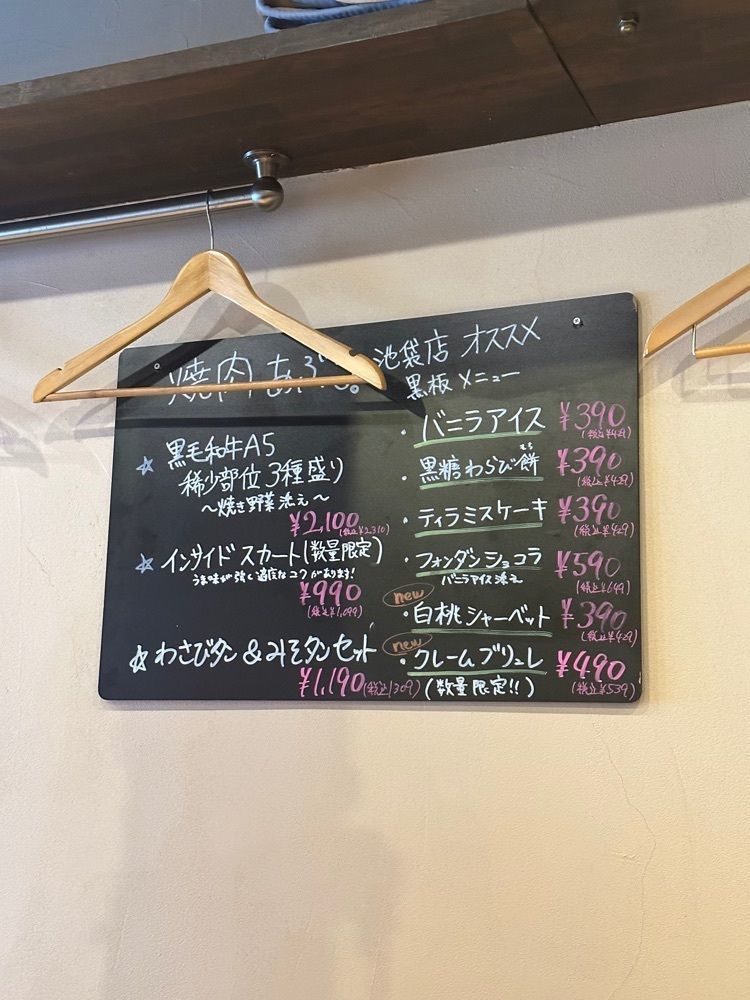 焼肉 あぶる。池袋店 オススメ
黒板メニュー
☆ 黒毛和牛A5
稀少部位 3種盛り
〜焼き野菜添え〜
¥2,100(税込¥2,310)
☆ インサイドスカート(数量限定)
うま味が強く適度なコクがあります!
¥990
(税込¥1,099)
☆ わさびタン&みそタンセット
¥1,190(税込1309)
・バニラアイス ¥390
(税込¥429)
もち
・黒糖わらび餅 ¥390
(税込¥429)
・ティラミスケーキ ¥390
(税込¥429)
・フォンダンショコラ ¥590
バニラアイス添え (税込¥649)
new
・白桃シャーベット ¥390
(税込¥429)
new
・クレームブリュレ ¥490
(数量限定!!) (税込¥539)